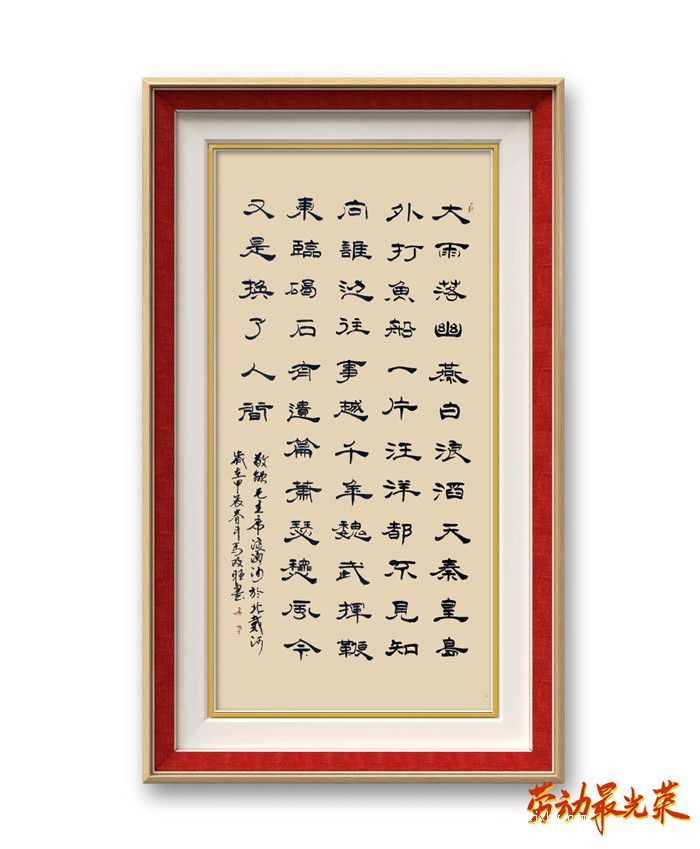 大雨落幽燕白浪滔天秦皇島
外打魚船一片汪洋都不見知
向誰边往事越千年魏武揮鞭
東臨碣石有遺篇蕭瑟秋風今
又是換了人間
敬錄毛主席浪淘沙於北戴河
歲在甲辰春月馬書
劳动最光荣